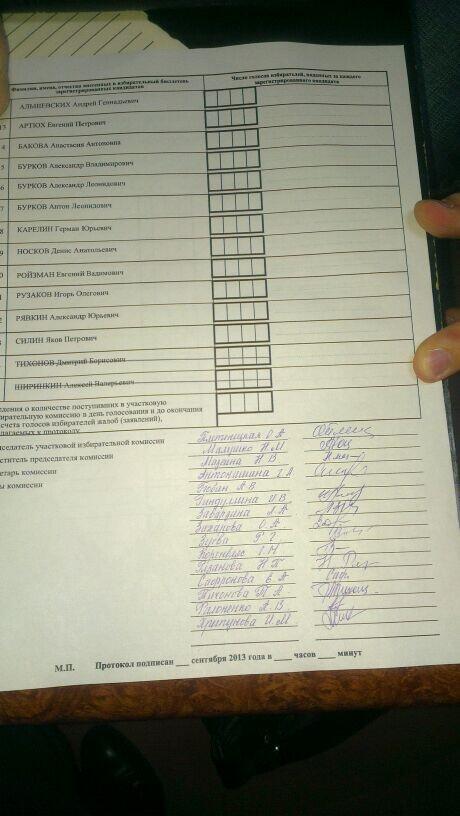 Фамилии, имена, отчества внесенных в избирательный бюллетень зарегистрированных кандидатов
Число голосов избирателей, поданных за каждого зарегистрированного кандидата
АЛЬШЕВСКИХ Андрей Геннадьевич
13 АРТЮХ Евгений Петрович
4 БАКОВА Анастасия Антоновна
5 БУРКОВ Александр Владимирович
6 БУРКОВ Александр Леонидович
7 БУРКОВ Антон Леонидович
8 КАРЕЛИН Герман Юрьевич
9 НОСКОВ Денис Анатольевич
0 РОЙЗМАН Евгений Вадимович
РУЗАКОВ Игорь Олегович
2 РЯВКИН Александр Юрьевич
СИЛИН Яков Петрович
ТИХОНОВ Дмитрий Борисович
ШИРИНКИН Алексей Валерьевич
едения о количестве поступивших в участковую
бирательную комиссию в день голосования и до окончания
счета голосов избирателей жалоб (заявлений),
лагаемых к протоколу
дседатель участковой избирательной комиссии О А
ститель председателя комиссии Мамушко Н.М
етарь комиссии Мазеина Н В
ы комиссии Антонишина
А В
Гиндуллина И.В
Л.А
Захарова О.А.
Зуева
Казанова Н
Сафронова Е А
Тихонова Т А
Филоненко А В
Хрипунова И.М
М.П. Протокол подписан ___ сентября 2013 года в ____ часов ____ минут